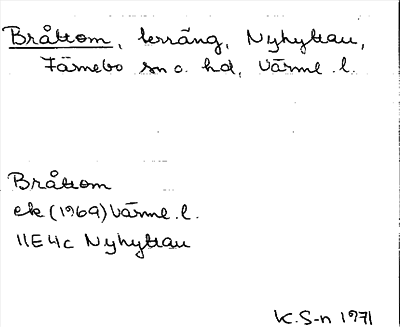 Bråttom, terräng, Nyhyttan,
Färnebo sn o. hd, Värml. l.
Bråttom
ek (1969) Värml. l.
11E4c Nyhyttan
K. S-n 1971